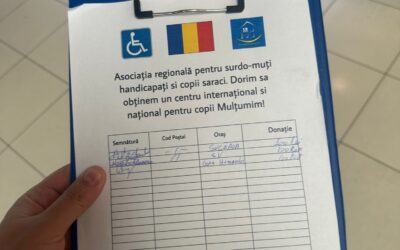 Asociația regională pentru surdo-muți
handicapați si copii saraci. Dorim sa
obținem un centru internațional si
național pentru copii Mulțumim!
Semnătură Cod Poștal Oraș Donație
SUCEAVA
SV